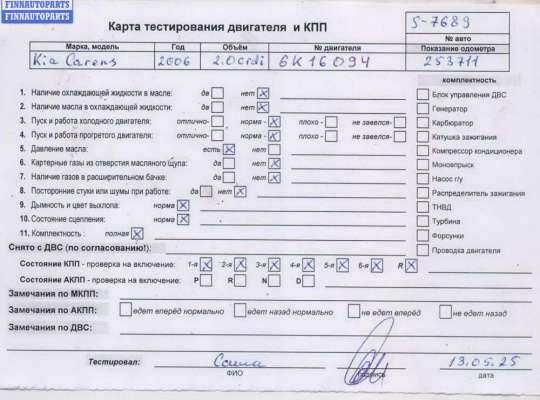 FINNAUTOPARTS
FINNAUTOPARTS
Карта тестирования двигателя и КПП
S-7689
№ авто
Марка, модель Год Объём № двигателя Показание одометра
Kia Carens 2006 2.0 crdi 6K16094 253711
комплектность
1. Наличие охлаждающей жидкости в масле: да нет
2. Наличие масла в охлаждающей жидкости: да нет
3. Пуск и работа холодного двигателя: отлично- норма - плохо - не завелся-
4. Пуск и работа прогретого двигателя: отлично- норма - плохо - не завелся-
5. Давление масла: есть нет
6. Картерные газы из отверстия масляного щупа: да нет
7. Наличие газов в расширительном бачке: да нет
8. Посторонние стуки или шумы при работе: да нет
9. Дымность и цвет выхлопа: норма
10. Состояние сцепления: норма
11. Комплектность : полная
Блок управления ДВС
Генератор
Карбюратор
Катушка зажигания
Компрессор кондиционера
Моновпрыск
Насос г/у
Распределитель зажигания
ТНВД
Турбина
Форсунки
Проводка двигателя
Снято с ДВС (по согласованию!):
Состояние КПП - проверка на включение: 1-я 2-я 3-я 4-я 5-я 6-я R
Состояние АКПП - проверка на включение: P R N D
Замечания по МКПП:
Замечания по АКПП: едет вперёд нормально едет назад нормально не едет вперёд не едет назад
Замечания по ДВС:
Тестировал: 13.05.25
ФИО подпись дата